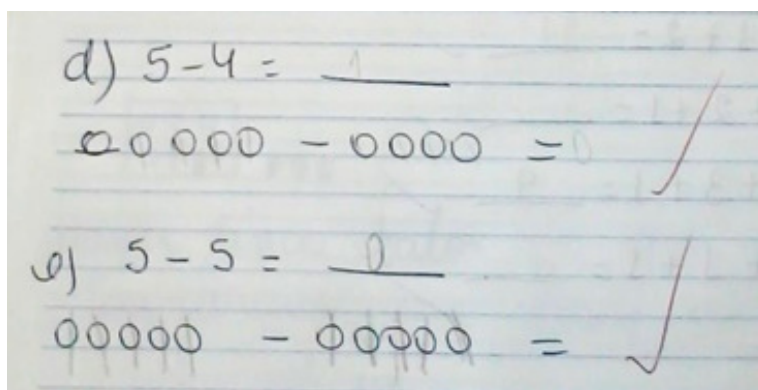 d) 5-4 = 1
00000 - 0000 = 0
e) 5 - 5 = 0
00000 - 00000 =